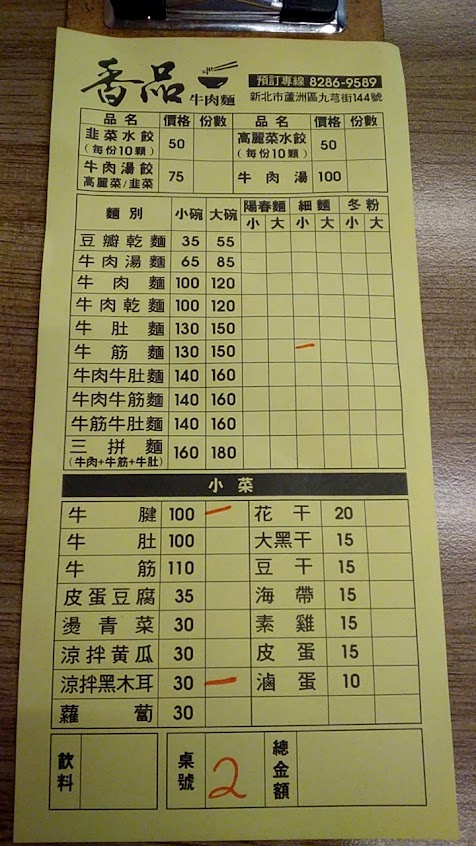 香品 牛肉麵
預訂專線 8286-9589
新北市蘆洲區九芎街144號
品名 價格 份數 品名 價格 份數
韭菜水餃(每份10顆) 50 高麗菜水餃(每份10顆) 50
牛肉湯餃 高麗菜/韭菜 75 牛肉湯 100
麵別 小碗 大碗 陽春麵 細麵 冬粉
小 大 小 大 小 大
豆瓣乾麵 35 55
牛肉湯麵 65 85
牛肉麵 100 120
牛肉乾麵 100 120
牛肚麵 130 150
牛筋麵 130 150 一
牛肉牛肚麵 140 160
牛肉牛筋麵 140 160
牛筋牛肚麵 140 160
三拼麵(牛肉+牛筋+牛肚) 160 180
小菜
牛腱 100 一 花干 20
牛肚 100 大黑干 15
牛筋 110 豆干 15
皮蛋豆腐 35 海帶 15
燙青菜 30 素雞 15
涼拌黃瓜 30 皮蛋 15
涼拌黑木耳 30 一 滷蛋 10
蘿蔔 30
飲料 桌號 2 總金額